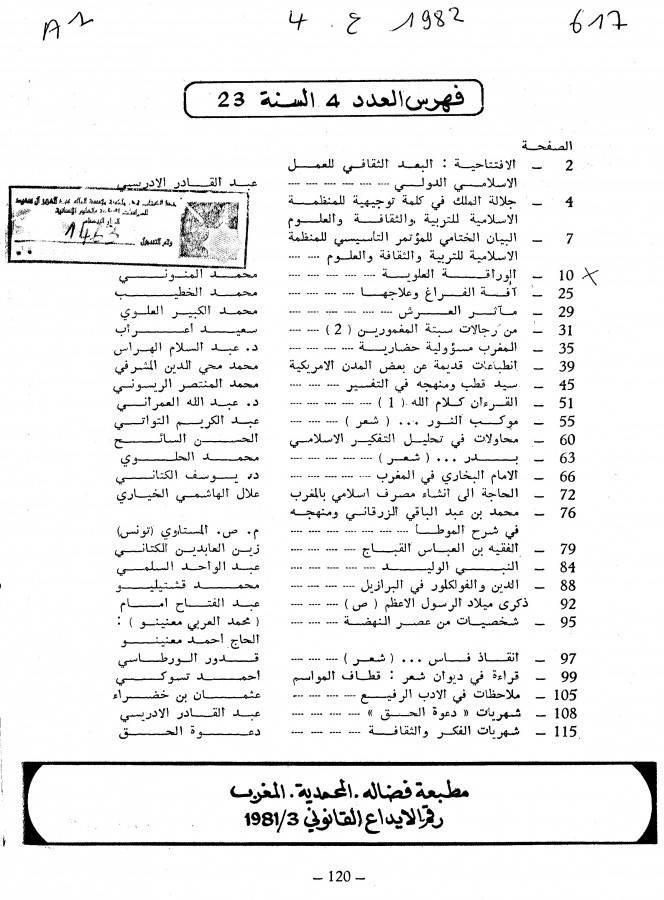 A2 4 . ع 1982 617
فهرس العدد 4 السنة 23
الصفحة
2 — الافتتاحية : البعد الثقافي للعمل
الاسلامي الدولي — — — — — — عبد القادر الادريسي
4 — جلالة الملك في كلمة توجيهية للمنظمة
الاسلامية للتربية والثقافة والعلوم
7 — البيان الختامي للمؤتمر التأسيسي للمنظمة
الاسلامية للتربية والثقافة والعلوم — —
10 — الوراقة العلوية — — — — محمد المنوني
25 — آفة الفراغ وعلاجها — — — محمد الخطيب
29 — مآثر العرش — — — — محمد الكبير العلوي
31 — من رجالات سبتة المغمورين ( 2 ) — — سعيد أعراب
35 — المغرب مسؤولية حضارية — — — د. عبد السلام الهراس
39 — انطباعات قديمة عن بعض المدن الامريكية محمد محي الدين المشرفي
45 — سيد قطب ومنهجه في التفسير — — محمد المنتصر الريسوني
51 — القرءان كلام الله ( 1 ) — — — د. عبد الله العمراني
55 — موكب النور ... ( شعر ) — — — عبد الكريم التواتي
60 — محاولات في تحليل التفكير الاسلامي الحسن السائح
63 — بدر ... ( شعر ) — — — — محمد الحلوي
66 — الامام البخاري في المغرب — — — د. يوسف الكتاني
72 — الحاجة الى انشاء مصرف اسلامي بالمغرب علال الهاشمي الخياري
76 — محمد بن عبد الباقي الزرقاني ومنهجه
في شرح الموطأ — — — — — م . ص . المستاوي (تونس)
79 — الفقيه بن العباس القباج — — — زين العابدين الكتاني
84 — النبي الوليد — — — — عبد الواحد السلمي
88 — الدين والفولكلور في البرازيل — — محمد قشتيليو
92 ذكرى ميلاد الرسول الاعظم ( ص ) — — عبد الفتاح امام
95 — شخصيات من عصر النهضة — — — ( محمد العربي معنينو ) :
الحاج أحمد معنينو
97 — انقاذ فاس ... ( شعر ) — — — قدور الورطاسي
99 — قراءة في ديوان شعر : قطاف المواسم احمد تسوكي
105 — ملاحظات في الادب الرفيع — — — عثمان بن خضراء
108 — شهريات « دعوة الحق » — — — — عبد القادر الادريسي
115 — شهريات الفكر والثقافة — — — دعوة الحق
مطبعة فضالة . المحمدية . المغرب
رقم الايداع القانوني 1981/3
— 120 —